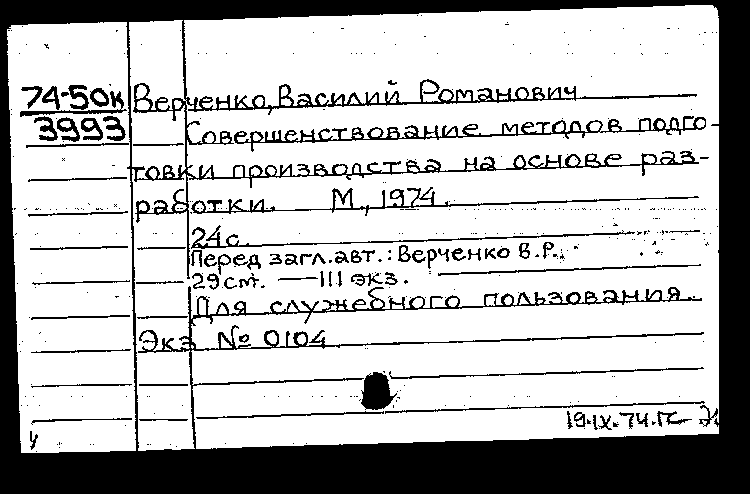 74-50к Верченко, Василий Романович
3993 Совершенствование методов подго-
товки производства на основе раз-
работки. М., 1974.
24с.
Перед загл.авт.: Верченко В.Р.
29см. — 111 экз.
Для служебного пользования.
Экз № 0104
19.IX.74.